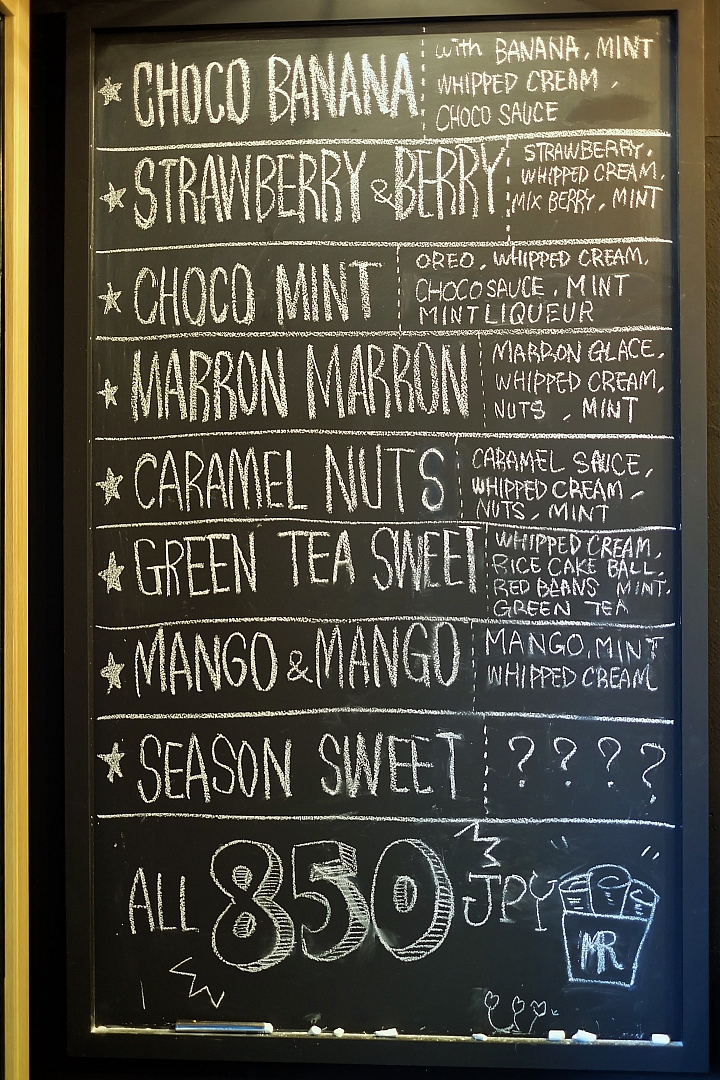 CHOCO BANANA
with BANANA, MINT
WHIPPED CREAM,
CHOCO SAUCE
STRAWBERRY & BERRY
STRAWBERRY,
WHIPPED CREAM,
MIX BERRY, MINT
CHOCO MINT
OREO, WHIPPED CREAM,
CHOCO SAUCE, MINT
MINT LIQUEUR
MARRON MARRON
MARRON GLACE,
WHIPPED CREAM,
NUTS, MINT
CARAMEL NUTS
CARAMEL SAUCE,
WHIPPED CREAM,
NUTS, MINT
GREEN TEA SWEET
WHIPPED CREAM,
RICE CAKE BALL,
RED BEANS MINT,
GREEN TEA
MANGO & MANGO
MANGO, MINT
WHIPPED CREAM
SEASON SWEET
? ? ? ?
ALL 850 JPY
MR